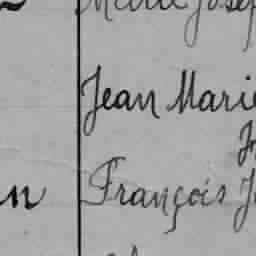 Marie Josep
Jean Marie
n François J